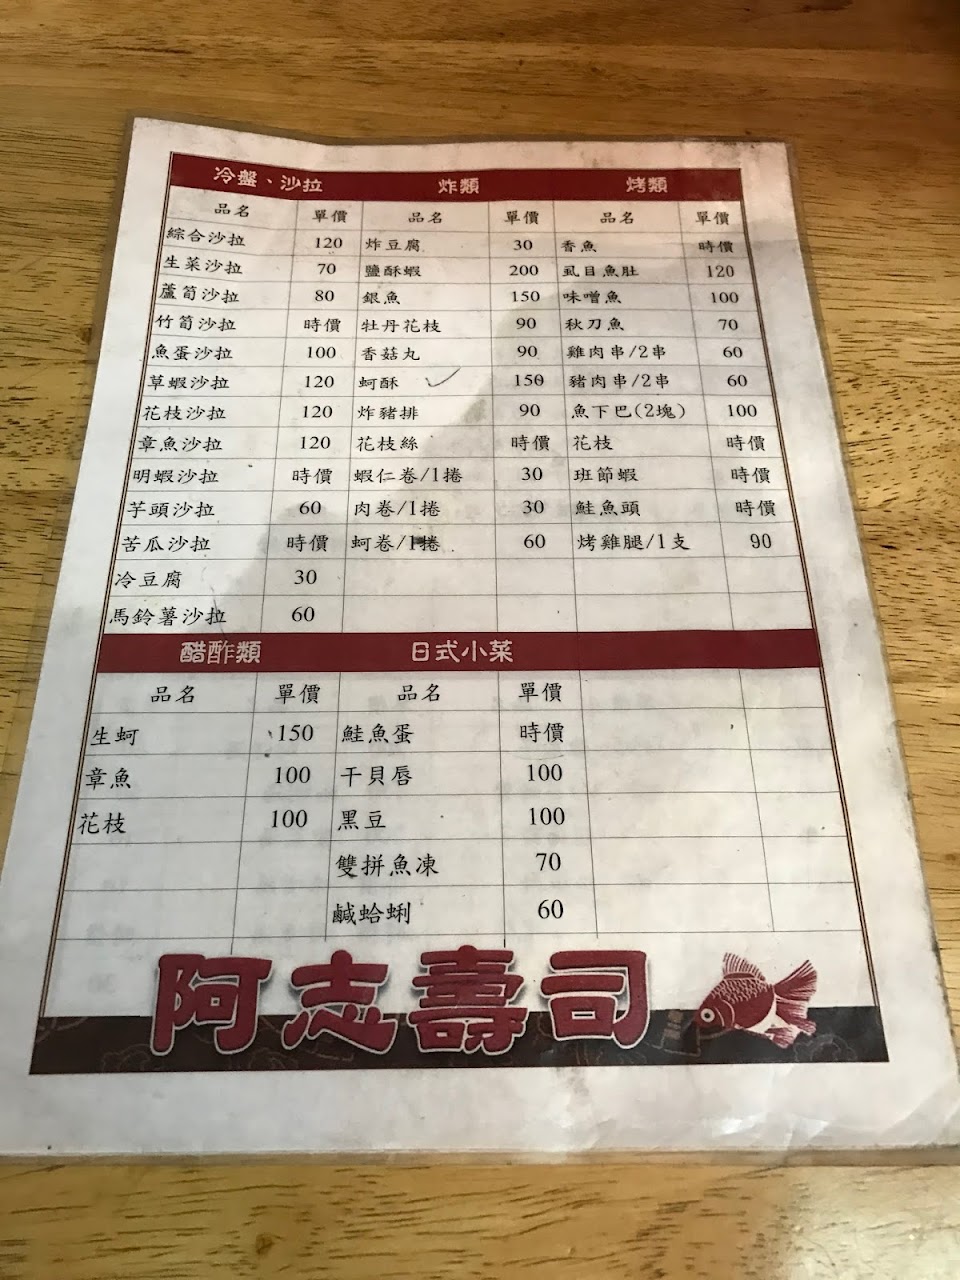 冷盤、沙拉 炸類 烤類
品名 單價 品名 單價 品名 單價
綜合沙拉 120 炸豆腐 30 香魚 時價
生菜沙拉 70 鹽酥蝦 200 虱目魚肚 120
蘆筍沙拉 80 銀魚 150 味噌魚 100
竹筍沙拉 時價 牡丹花枝 90 秋刀魚 70
魚蛋沙拉 100 香菇丸 90 雞肉串/2串 60
草蝦沙拉 120 蚵酥 150 豬肉串/2串 60
花枝沙拉 120 炸豬排 90 魚下巴(2塊) 100
章魚沙拉 120 花枝絲 時價 花枝 時價
明蝦沙拉 時價 蝦仁卷/1捲 30 班節蝦 時價
芋頭沙拉 60 肉卷/1捲 30 鮭魚頭 時價
苦瓜沙拉 時價 蚵卷/1捲 60 烤雞腿/1支 90
冷豆腐 30
馬鈴薯沙拉 60
醋酢類 日式小菜
品名 單價 品名 單價
生蚵 150 鮭魚蛋 時價
章魚 100 干貝唇 100
花枝 100 黑豆 100
雙拼魚凍 70
鹹蛤蜊 60
阿志壽司